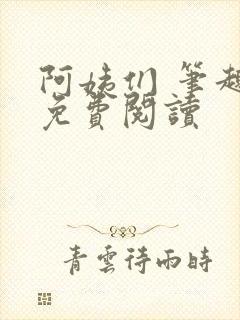 阿姨们 筆趣
免費閱讀
青雲待雨時